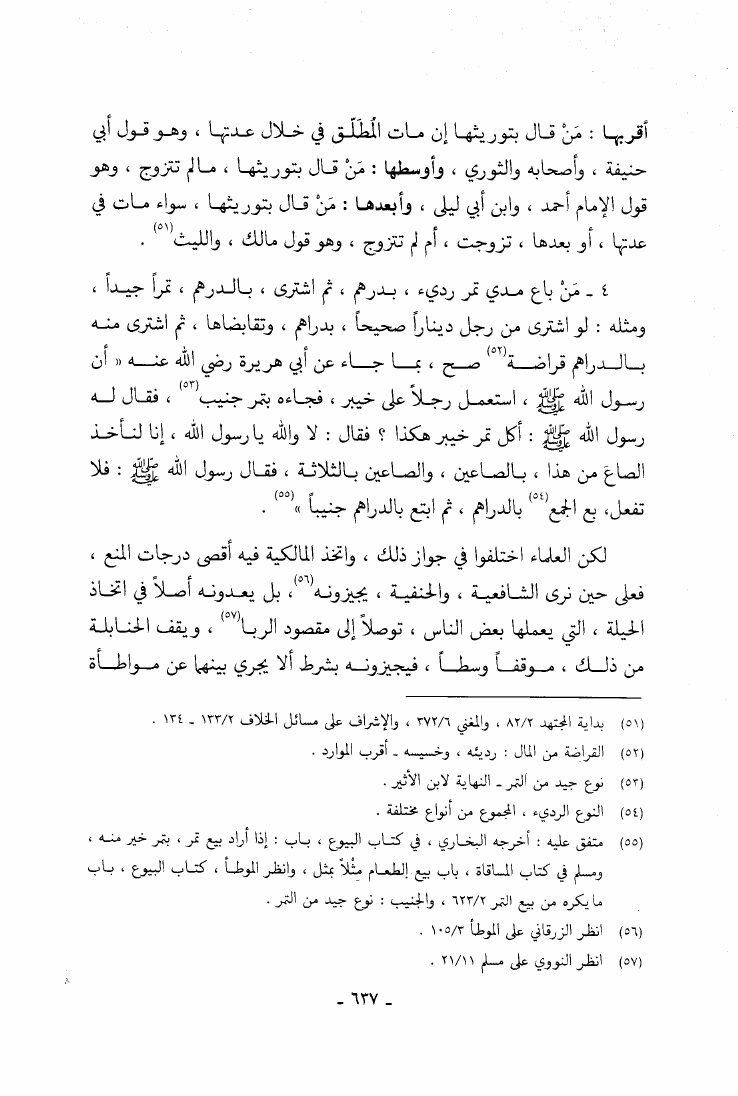 أقربها : مَنْ قال بتوريثها إن مات المُطَلِّق في خلال عدتها ، وهو قول أبي
حنيفة ، وأصحابه والثوري ، وأوسطها : مَنْ قال بتوريثها ، مالم تتزوج ، وهو
قول الإمام أحمد ، وابن أبي ليلى ، وأبعدها : مَنْ قال بتوريثها ، سواء مات في
عدتها ، أو بعدها ، تزوجت ، أم لم تتزوج ، وهو قول مالك ، والليث(٥١) .
٤ ـ مَنْ باع مدي تمر رديء ، بدرهم ، ثم اشترى ، بالدرهم ، تمراً جيداً ،
ومثله : لو اشترى من رجل ديناراً صحيحاً ، بدراهم ، وتقابضاها ، ثم اشترى منه
بالدراهم قراضة(٥٢) صح ، بما جاء عن أبي هريرة رضي الله عنه « أن
رسول الله ﷺ ، استعمل رجلاً على خيبر ، فجاءه بتمر جنيب(٥٣) ، فقال له
رسول الله ﷺ : أكل تمر خيبر هكذا ؟ فقال : لا والله يارسول الله ، إنا لنأخذ
الصاعَ من هذا ، بالصاعين ، والصاعين بالثلاثة ، فقال رسول الله ﷺ : فلا
تفعل، بع الجمع(٥٤) بالدراهم ، ثم ابتع بالدراهم جنيباً »(٥٥) .
لكن العلماء اختلفوا في جواز ذلك ، واتخذ المالكية فيه أقصى درجات المنع ،
فعلى حين نرى الشافعية ، والحنفية ، يجيزونه(٥٦)، بل يعدونه أصلاً في اتخاذ
الحيلة ، التي يعملها بعض الناس ، توصلاً إلى مقصود الربا(٥٧) ، ويقف الحنابلة
من ذلك ، موقفاً وسطاً ، فيجيزونه بشرط ألا يجري بينها عن مواطأة
(٥١) بداية المجتهد ٨٢/٢ ، والمغني ٣٧٢/٦ ، والإشراف على مسائل الخلاف ١٣٣/٢ ـ ١٣٤ .
(٥٢) القراضة من المال : رديئه ، وخسيسه ـ أقرب الموارد .
(٥٣) نوع جيد من التمر ـ النهاية لابن الأثير .
(٥٤) النوع الرديء ، المجموع من أنواع مختلفة .
(٥٥) متفق عليه : أخرجه البخاري ، في كتاب البيوع ، باب : إذا أراد بيع تمر ، بتمر خير منه ،
ومسلم في كتاب المساقاة ، باب بيع الطعام مِثْلاً بمثل ، وانظر الموطأ ، كتاب البيوع ، باب
مايكره من بيع التمر ٦٢٣/٢ ، والجنيب : نوع جيد من التمر .
(٥٦) انظر الزرقاني على الموطأ ١٠٥/٣ .
(٥٧) انظر النووي على مسلم ٢١/١١ .
ـ ٦٣٧ ـ